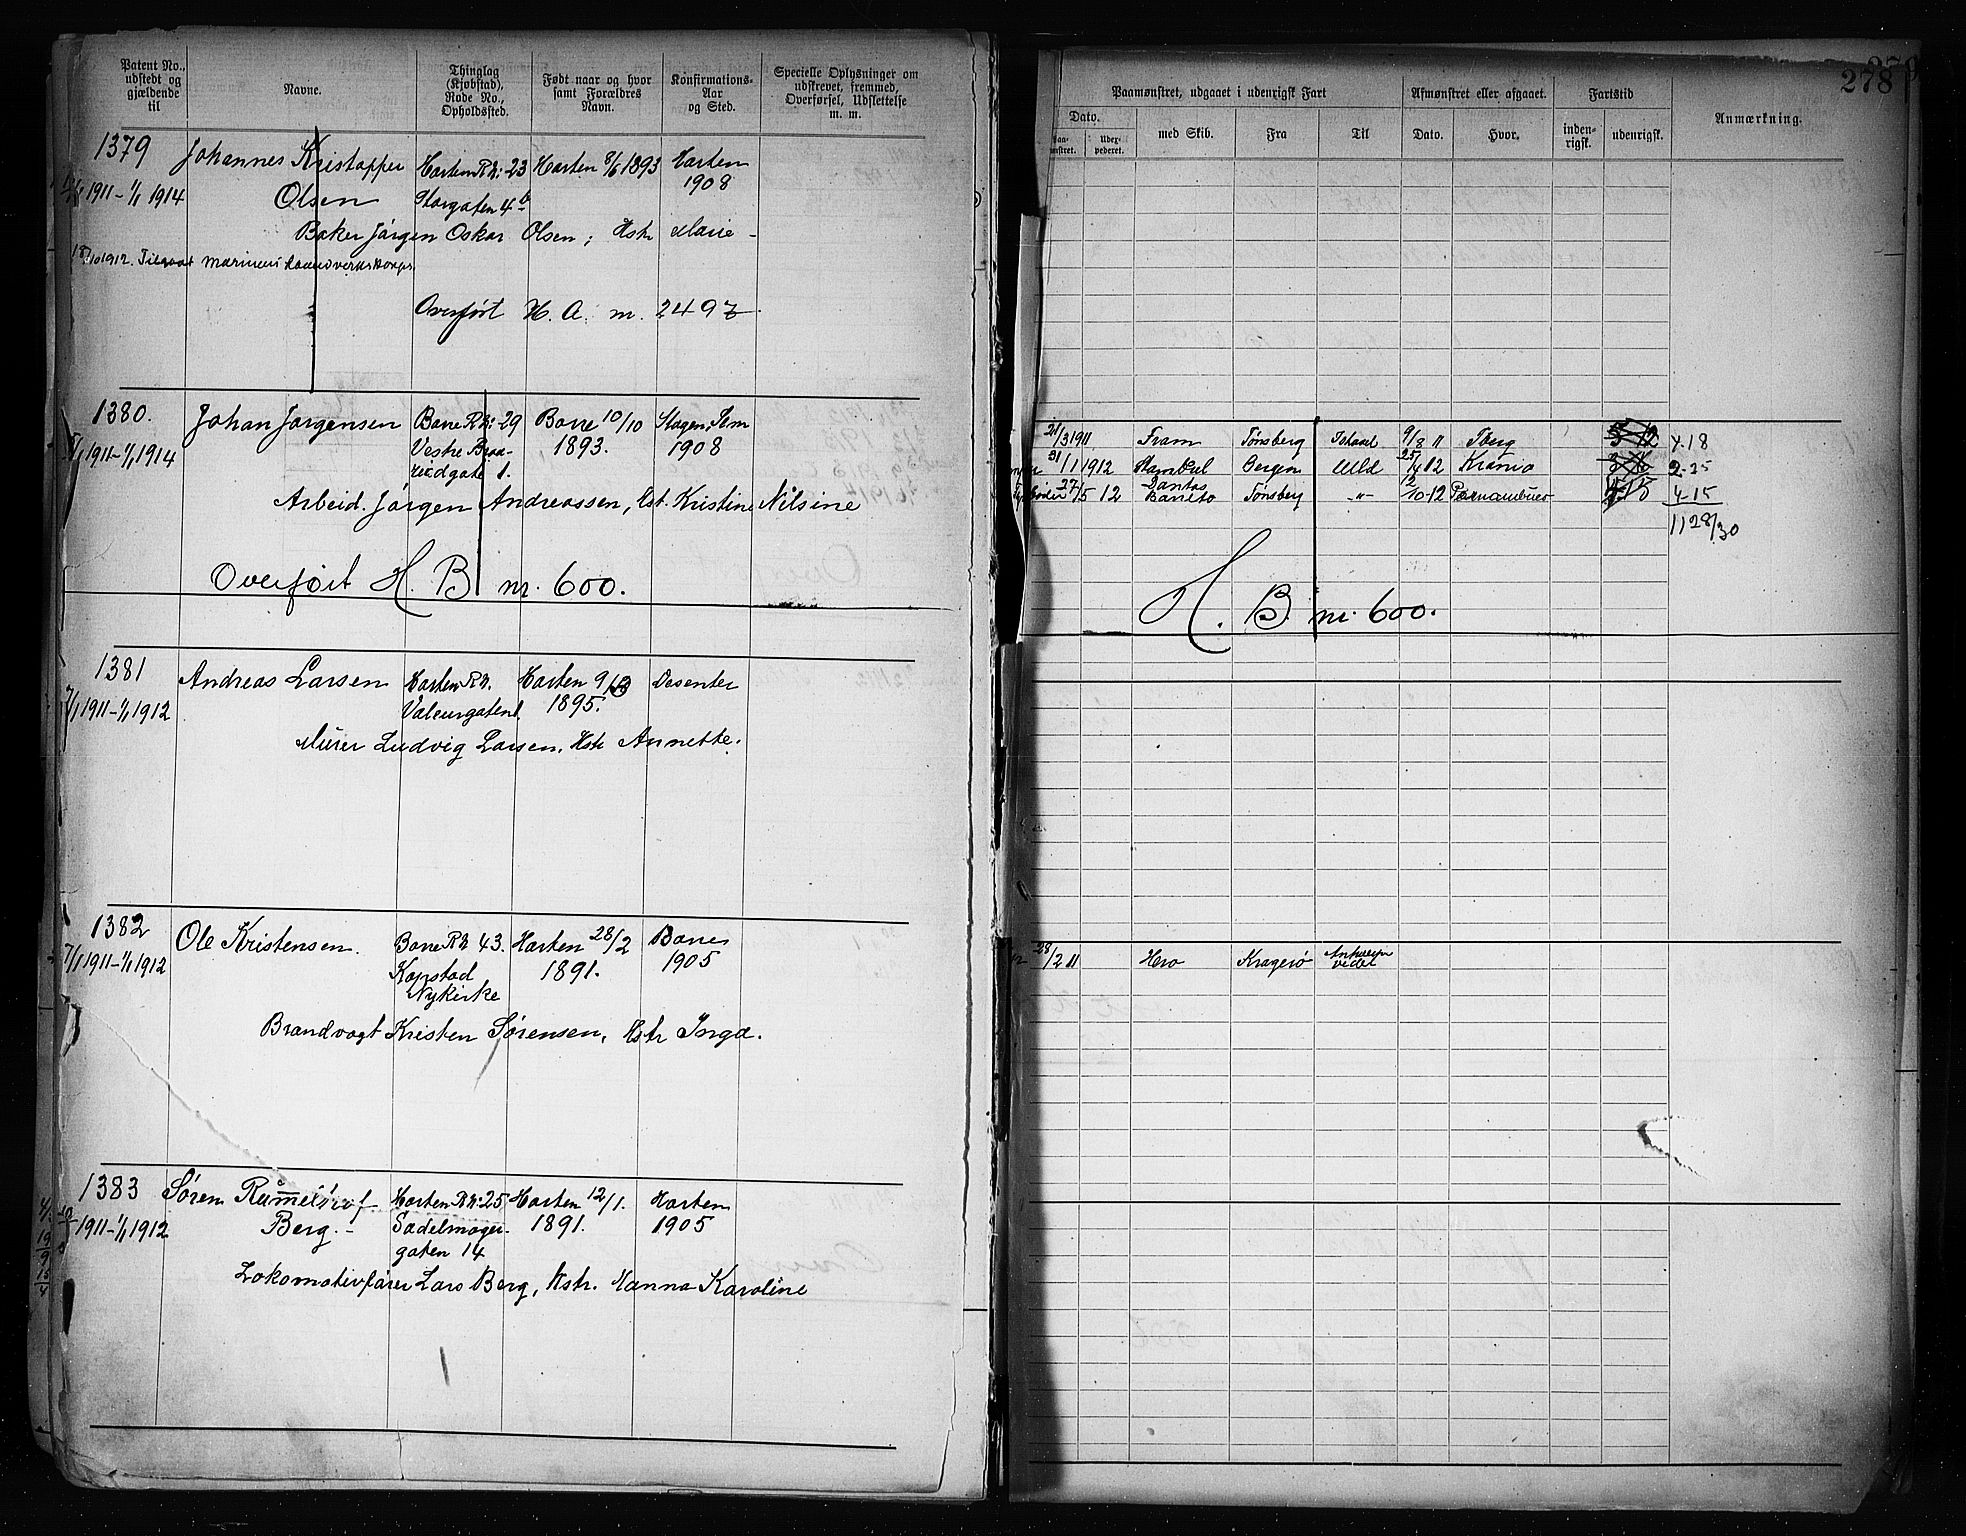 Patent No., udstedt og gjældende til
Navne.
Thinglag (Kjøbstad), Rode No., Opholdssted.
Født naar og hvor samt Forældres Navn.
Konfirmations-Aar og Sted.
Specielle Oplysninger om udskrevet, fremmed, Overførsel, Udslettelse m. m.
1379 Johannes Kristopper Horten R.N: 23 Horten 8/6 1893 Horten
1911-1/1 1914 Olsen Storgaten 4b 1908
Baker Jørgen Oskar Olsen; Hstr Marie -
18/10 1912. Tilgaat marinens haandverkskorps.
Overført H. A. nr. 2497
1380. Johan Jørgensen Borre R.N: 29 Borre 10/10 Slagen, Sem
1911-1/1 1914 Vestre 1893. 1908
1.
Arbeid. Jørgen Andreassen, Hst. Kristine Nilsine
Overført H. B nr. 600.
1381 Andreas Larsen Horten R.N. Horten 9/ Desenter
7/1 1911-1/1 1912 1895.
Murer Ludvig Larsen, Hstr Annette.
1382 Ole Kristensen Borre R.N 43. Horten 28/2 Borre
7/1 1911-1/1 1912 Kopstad 1891. 1905
Nykirke
Brandvagt Kristen Sørensen, Hstr Inga.
1383 Søren Horten R.N: 25 Horten 12/1. Horten
1911-1/1 1912 Berg. - Sadelmager- 1891. 1905
gaten 14
Lokomotivfører Lars Berg, Hstr. Hanna Karoline
278
Paamønstret, udgaaet i udenrigsk Fart
Afmønstret eller afgaaet.
Fartstid
Anmærkning.
Dato.
med Skib.
Fra
Til
Dato.
Hvor.
inden-rigsk.
udenrigsk.
21/3 1911 Fram Tønsberg 9/8 11 Tberg 4-18
31/1 1912 Bergen Uld 25/4 12 2-25
27/5 12 Santos Tønsberg -"- 12/10 12 Pernambuco 4-15
1128/30
H. B. nr. 600.
28/2 11 Hero Kragerø